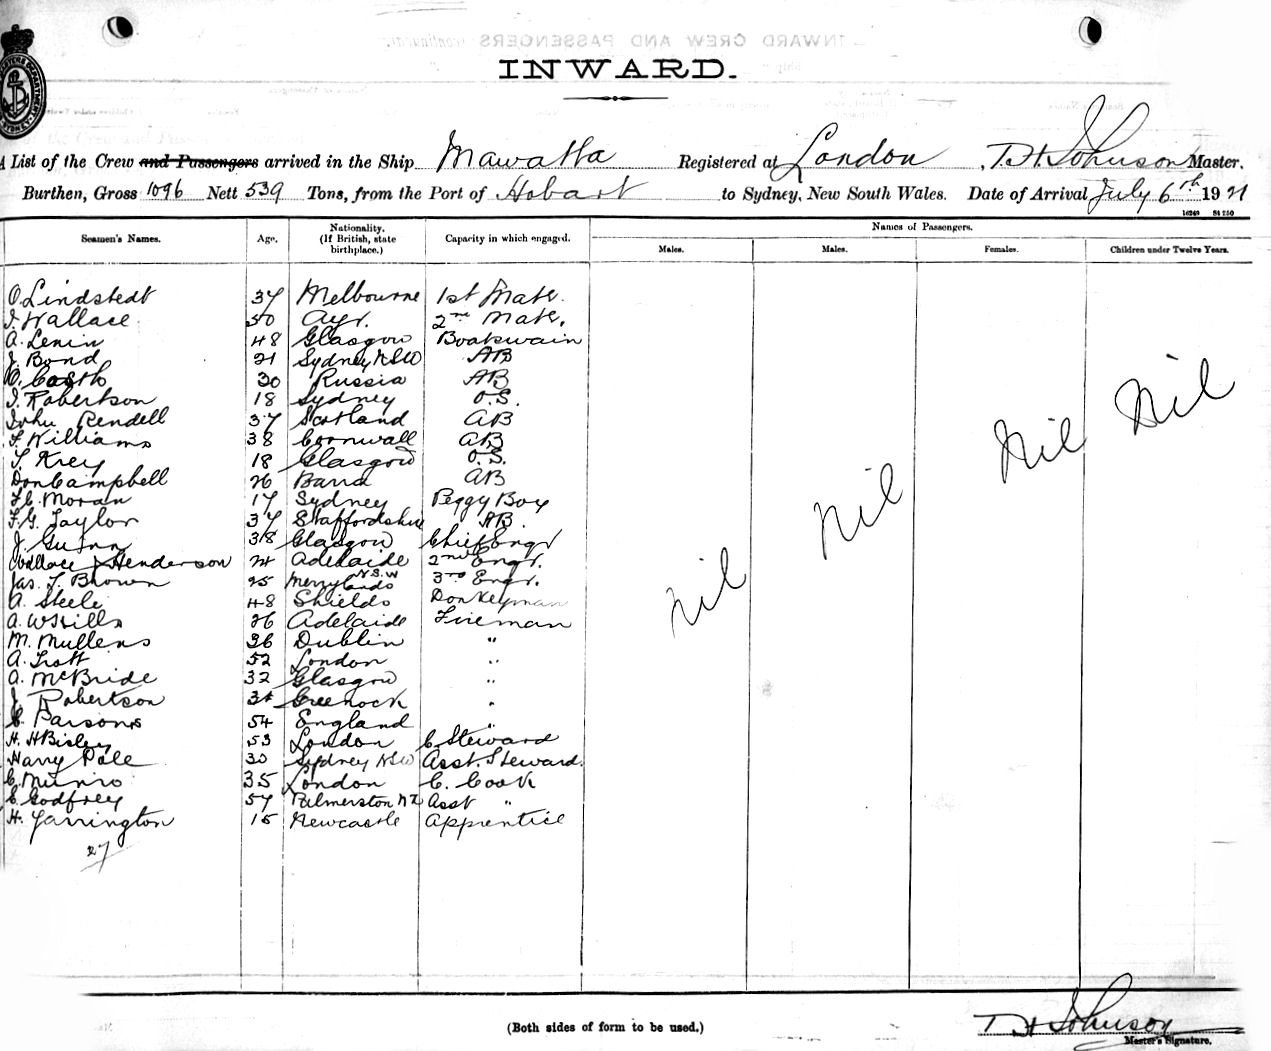 INWARD.
A List of the Crew and Passengers arrived in the Ship Mawatta Registered at London, T. H. Johnson Master,
Burthen, Gross 1096 Nett 539 Tons, from the Port of Hobart to Sydney, New South Wales. Date of Arrival July 6th 1921
16249 St 250
Seamen's Names. Age. Nationality. (If British, state birthplace.) Capacity in which engaged. Names of Passengers.
Males. Males. Females. Children under Twelve Years.
O. Lindstedt 37 Melbourne 1st Mate.
J. Wallace 50 Ayr. 2nd Mate.
A. Lenin 48 Glasgow Boatswain
J. Bond 21 Sydney NSW AB
30 Russia AB
J. Robertson 18 Sydney O.S.
John Rendell 37 Scotland AB
F. Williams 38 Cornwall AB
T. Krey 18 Glasgow O.S.
Don Campbell 26 Barra AB
F.C. Moran 17 Sydney Peggy Boy
F.G. Taylor 37 Staffordshire AB.
J. Guinn 38 Glasgow Chief Engr
Wallace J Henderson 24 Adelaide 2nd Engr.
Jas. T. Brown 25 Merrylands N.S.W 3rd Engr.
A. Steele 48 Shields Donkeyman
A. W Stills 26 Adelaide Fireman
M. Mullens 36 Dublin "
A. Trott 52 London "
A. McBride 32 Glasgow "
J. Robertson 34 Greenock "
C. Parsons 54 England "
H. H Bisley 53 London C. Steward
Harry Pole 30 Sydney NSW Asst. Steward.
C. Munro 35 London C. Cook
C. Godfrey 57 Palmerston NZ Asst "
H. Yarrington 15 Newcastle Apprentice
27
Nil Nil Nil Nil
(Both sides of form to be used.)
T H Johnson
Master's Signature.